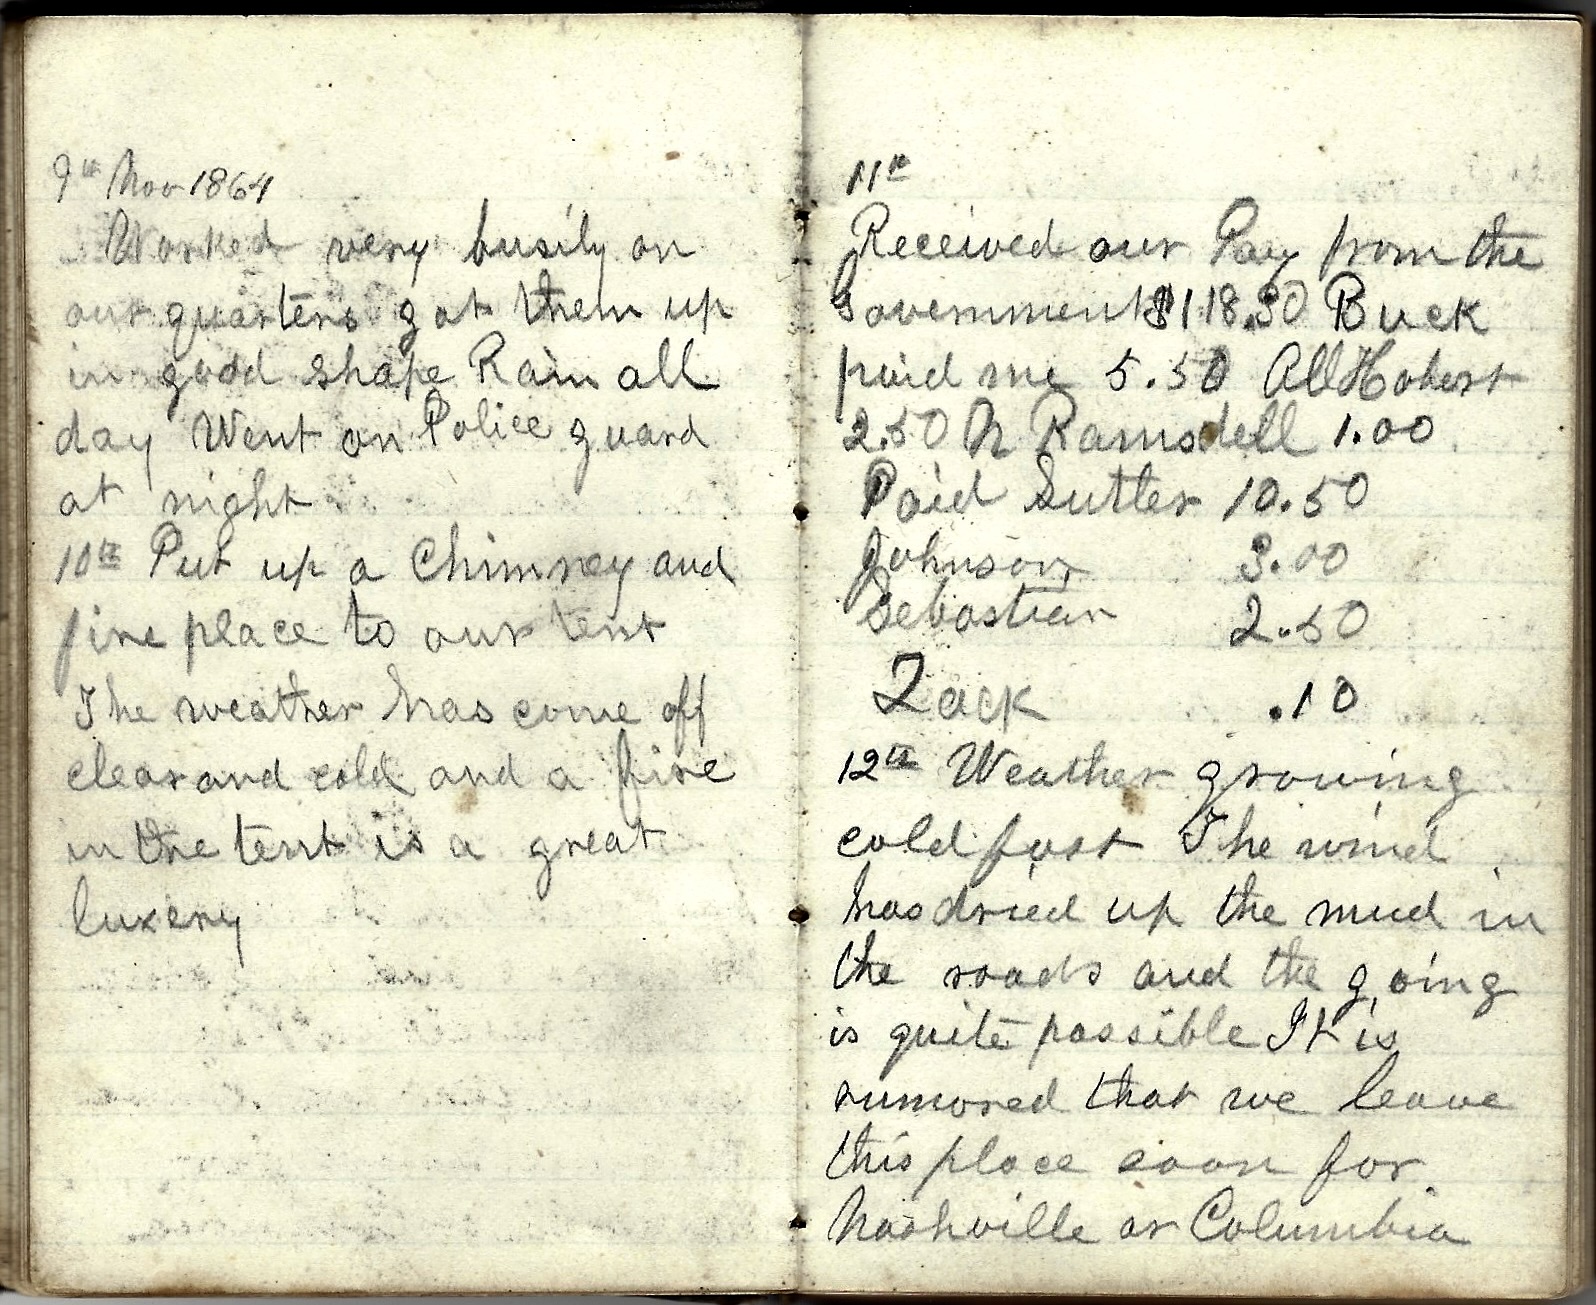 9th Nov 1864
Worked very busily on
our quarters got them up
in good shape Rain all
day Went on Police guard
at night
10th Put up a Chimney and
fire place to our tent
The weather has come off
clear and cold and a fire
in the tent is a great
luxery
11th
Received our Pay from the
Government $118.30 Buck
paid me 5.50 All Hobert
2.50 N Ramsdell 1.00
Paid Sutler 10.50
Johnson 3.00
Sebastian 2.50
Zack .10
12th Weather growing
cold fast The wind
has dried up the mud in
the roads and the going
is quite possible It is
rumored that we leave
this place soon for
Nashville or Columbia